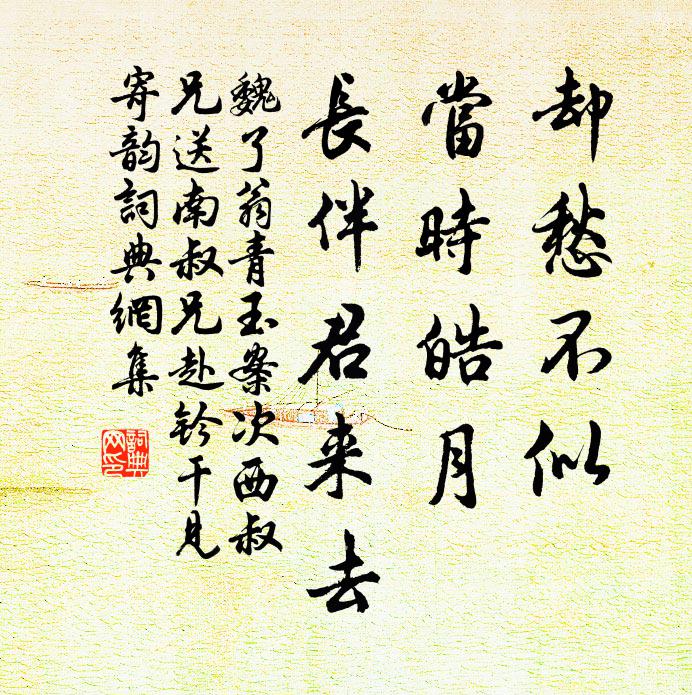 却愁不似
當時皓月
長伴君来去
魏了翁青玉案次西叔
兄送南叔兄赴鈐干見
寄韵詞典網集
詞典
网印